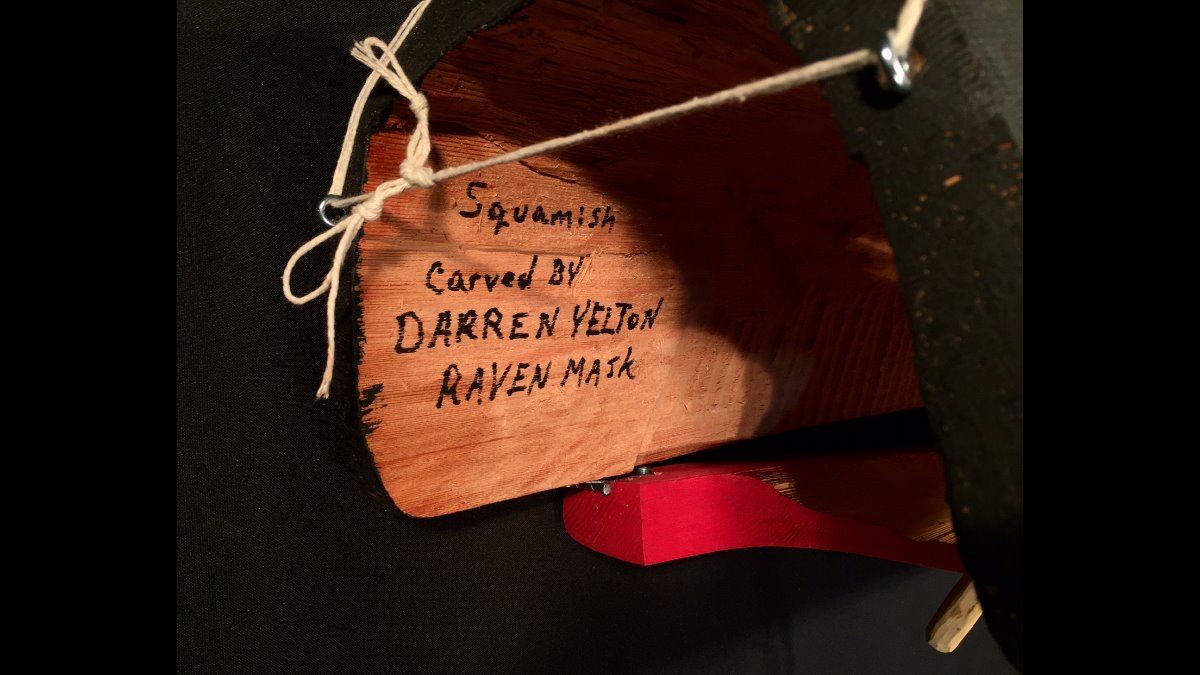 Squamish
Carved BY
DARREN YELTON
RAVEN MASK